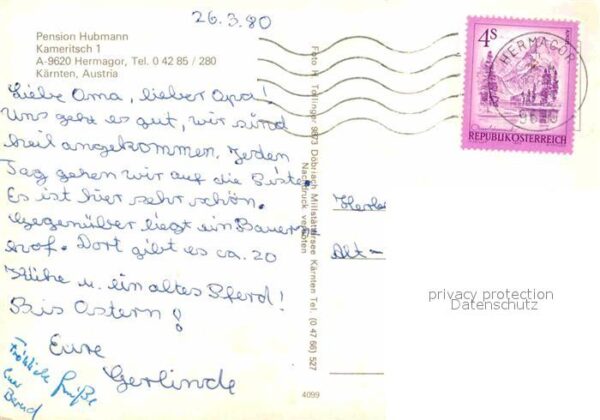 26.3.80
Pension Hubmann
Kameritsch 1
A-9620 Hermagor, Tel. 0 42 85 / 280
Kärnten, Austria
Liebe Oma, lieber Opa!
Uns geht es gut, wir sind
heil angekommen. Jeden
Tag gehen wir auf die Piste.
Es ist hier sehr schön.
Gegenüber liegt ein Bauern
hof. Dort gibt es ca. 20
Kühe u. ein altes Pferd!
Bis Ostern!
Eure
Gerlinde
Fröhliche Grüße
Bernd
Foto H. Tollinger 9873 Döbriach Millstättersee Kärnten Tel. (0 47 66) 527
Nachdruck verboten
4099
4s
REPUBLIK ÖSTERREICH
HERMAGOR
9620
Alt-
privacy protection
Datenschutz